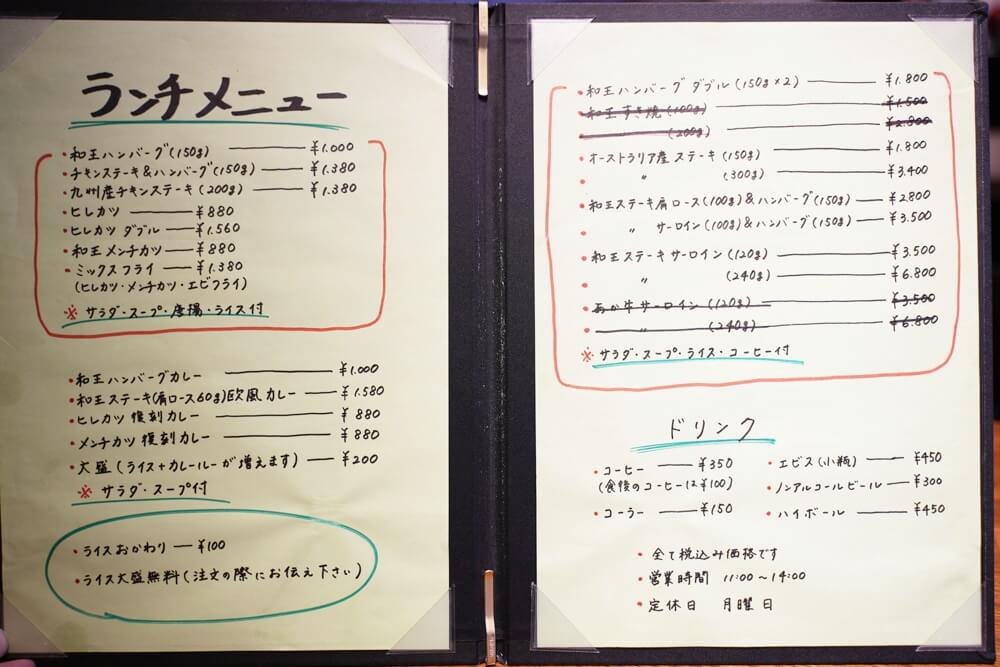 ランチメニュー
・和王ハンバーグ(150g) ¥1.000
・チキンステーキ&ハンバーグ(150g) ¥1.380
・九州産チキンステーキ(200g) ¥1.380
・ヒレカツ ¥880
・ヒレカツ ダブル ¥1.560
・和王メンチカツ ¥880
・ミックスフライ ¥1.380
(ヒレカツ・メンチカツ・エビフライ)
※ サラダ・スープ・唐揚・ライス付
・和王ハンバーグカレー ¥1.000
・和王ステーキ(肩ロース60g)欧風カレー ¥1.580
・ヒレカツ 復刻カレー ¥880
・メンチカツ 復刻カレー ¥880
・大盛(ライス+カレールーが増えます) ¥200
※ サラダ・スープ付
・ライスおかわり ¥100
・ライス大盛無料(注文の際にお伝え下さい)
・和王ハンバーグ ダブル(150g×2) ¥1.800
・和王すき焼(100g) ¥1.500
・(200g) ¥2.800
・オーストラリア産 ステーキ(150g) ¥1.800
・〃 (300g) ¥3.400
・和王ステーキ肩ロース(100g)&ハンバーグ(150g) ¥2800
・〃 サーロイン(100g)&ハンバーグ(150g) ¥3.500
・和王ステーキ サーロイン(120g) ¥3.500
・〃 (240g) ¥6.800
・あか牛サーロイン(120g) ¥3.500
・〃 (240g) ¥6.800
※ サラダ・スープ・ライス・コーヒー付
ドリンク
・コーヒー ¥350
(食後のコーヒーは¥100)
・コーラー ¥150
・エビス(小瓶) ¥450
・ノンアルコールビール ¥300
・ハイボール ¥450
・全て税込み価格です
・営業時間 11:00〜14:00
・定休日 月曜日